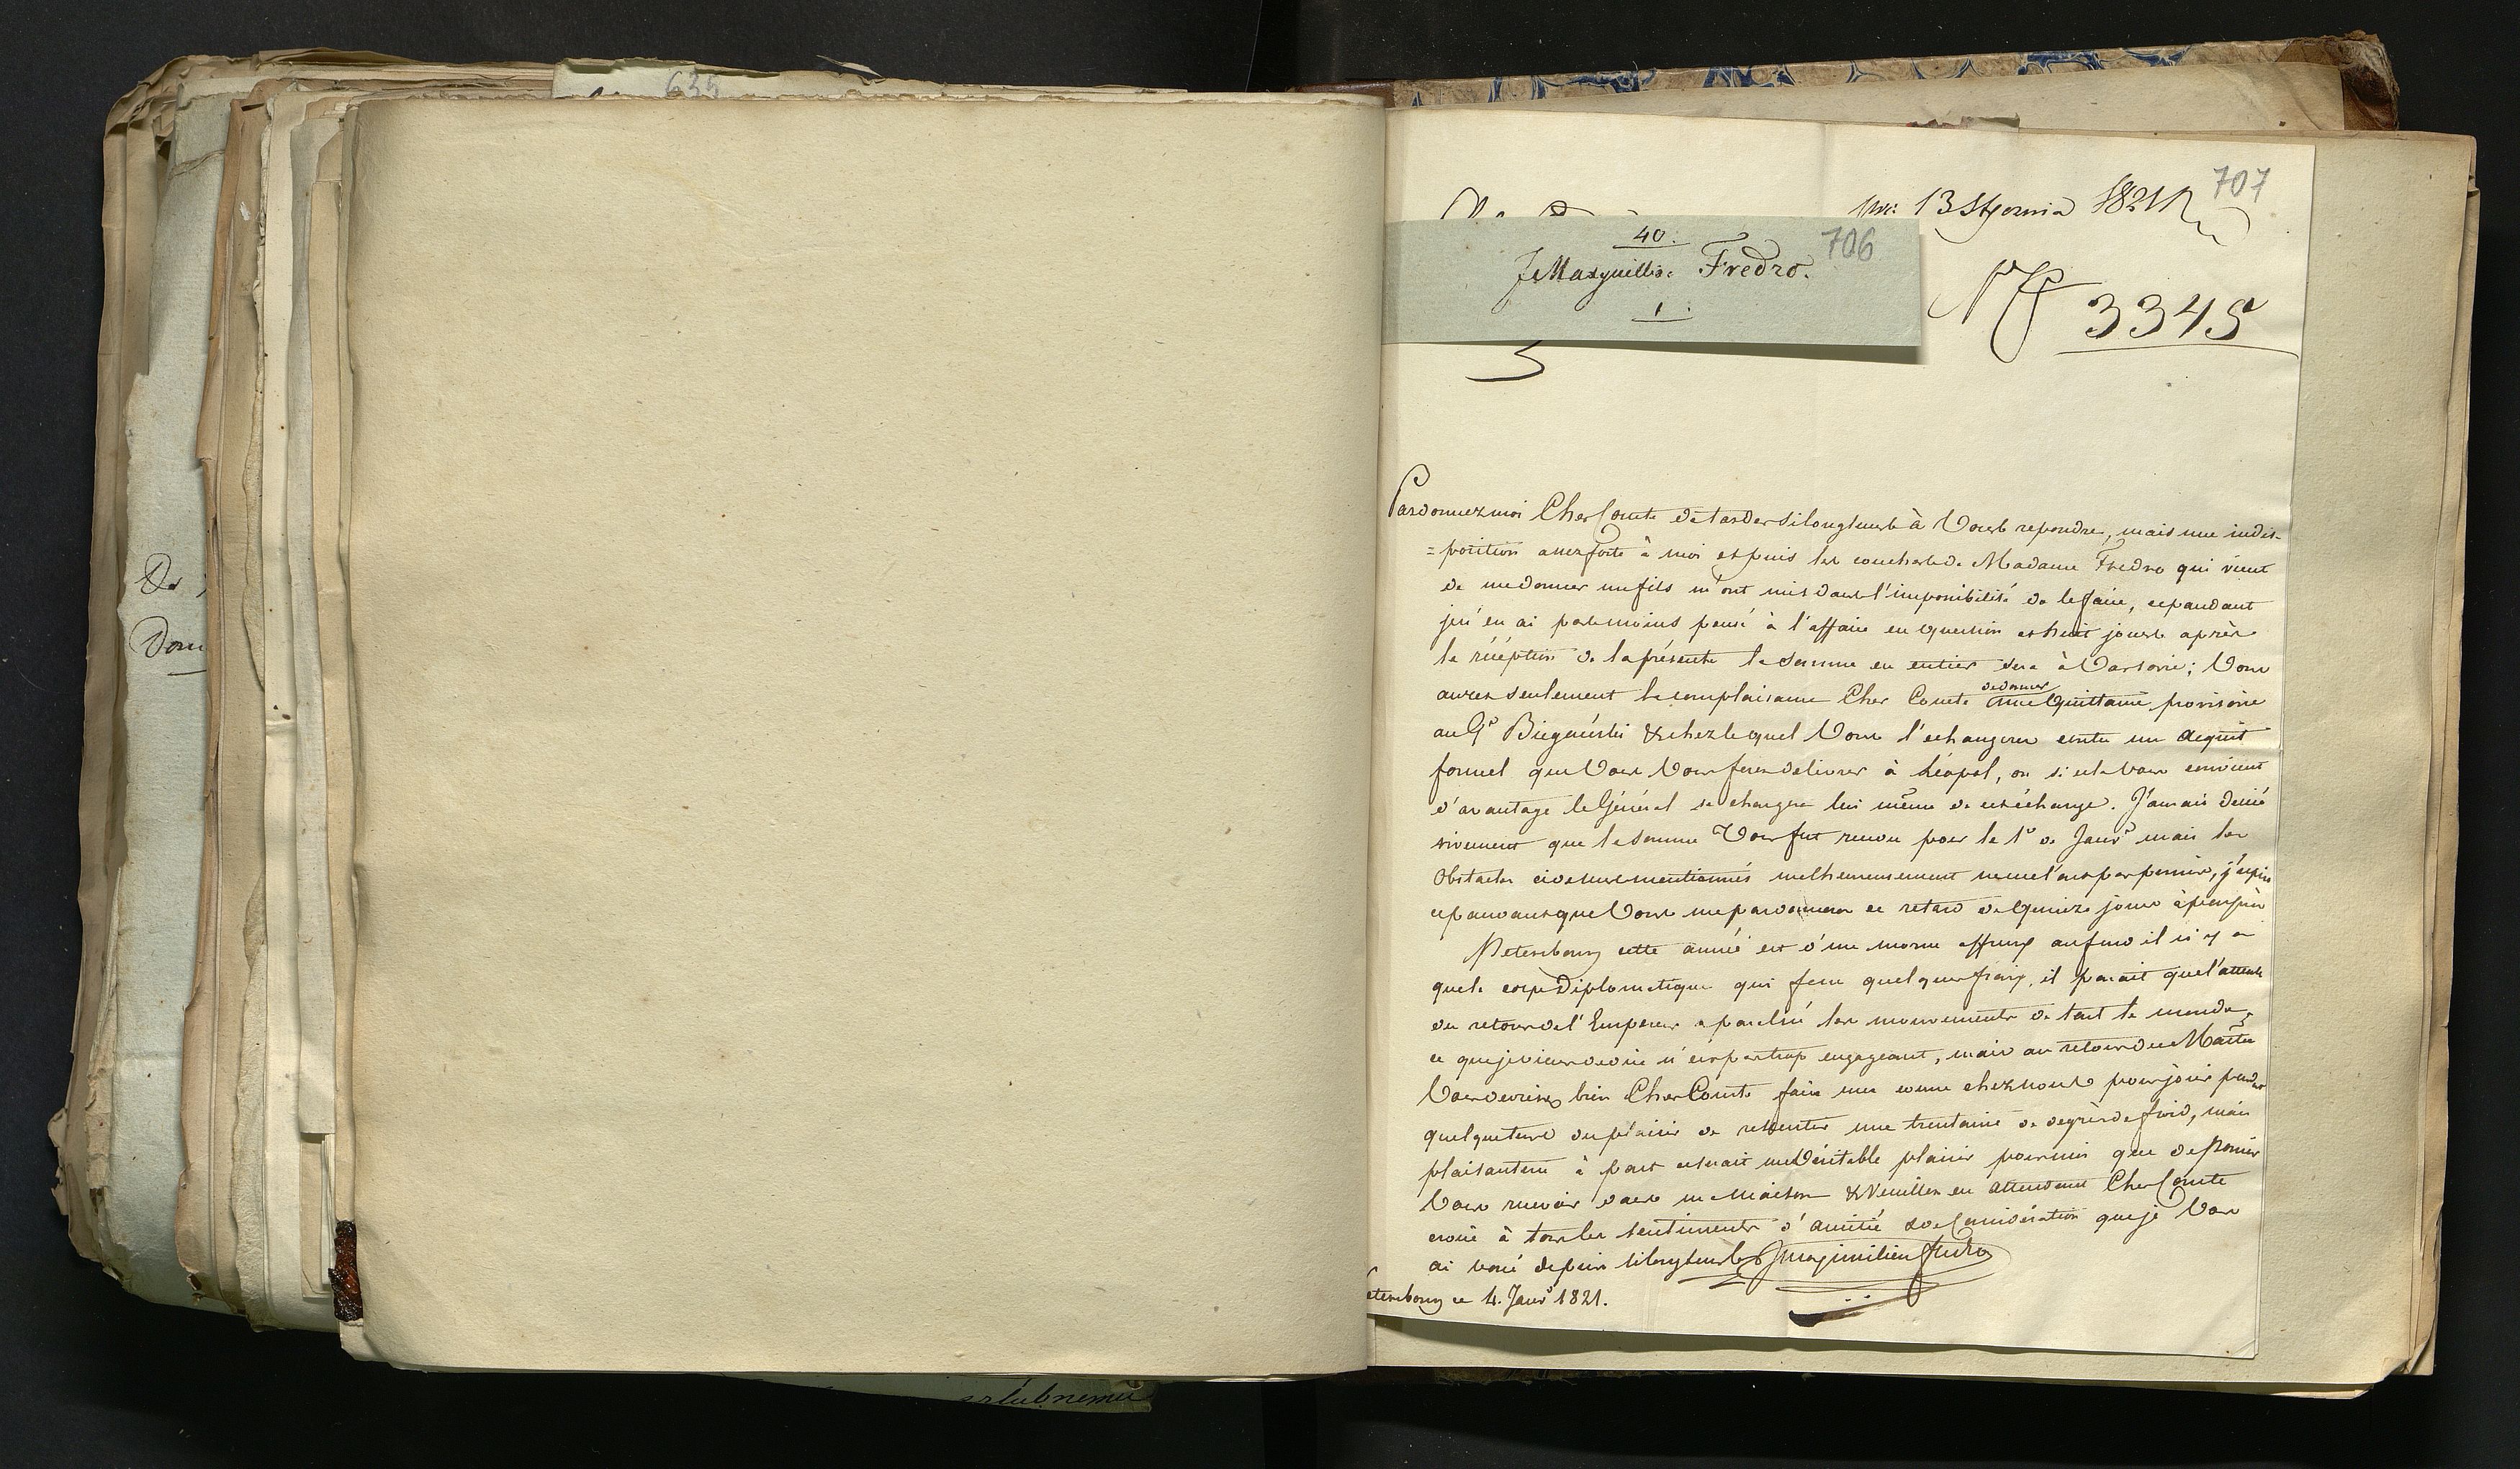 635
De
Dom
13 Stycznia 1821
707
40.
706
J. Maxymilian Fredro.
1.
N 3345
Pardonnez moi Cher Comte de tarder si longtems à Vous repondre, mais une indis-
=position assez forte à moi et puis les couches de Madame Fredro qui vient
de me donner un fils m'ont mis dans l'impossibilité de le faire, cependant
je n'en ai pas moins pensé à l'affaire en question et huit jours après
la réception de la présente la somme en entier sera à Varsovie; Vous
aurez seulement la complaisance Cher Comte de donner une Quittance provisoire
au Gl Biegański & chez lequel Vous l'echangerez contre un acquit
formel que Vous Vous ferez delivrer à Léopol, ou si cela Vous convient
d'avantage le Général se chargera lui même de cet échange. J'aurais desiré
vivement que la somme Vous fut rendu pour le 1r de Janvr mais les
Obstacles cidessus mentionnés malheureusement ne me l'ont pas permis, j'espère
cependant que Vous me pardonnerez ce retard de Quinze jours à peu près
Petersbourg cette année est d'une morne affreux au fond il n'y a
que le corps Diplomatique qui fera quelques fraix, il parait que l'attente
du retour de l'Empereur a paralisé les mouvements de tout le monde,
ce que je viens de dire n'est pas trop engageant, mais au retour du Maitre
Vous devriez bien Cher Comte faire une course chez nous pour jouir pendant
quelque tems du plaisir de ressentir une trentaine de degrès de froid, mais
plaisanterie à part ce serait un Véritable plaisir pour moi que de pouvoir
Vous recevoir dans ma Maison & Veuillez en attendant Cher Comte
croire à tous les sentiments d'amitié & de Considération que je Vous
ai voué depuis si longtems J Maximilien Fredro
etersbourg ce 4. Janvr 1821.